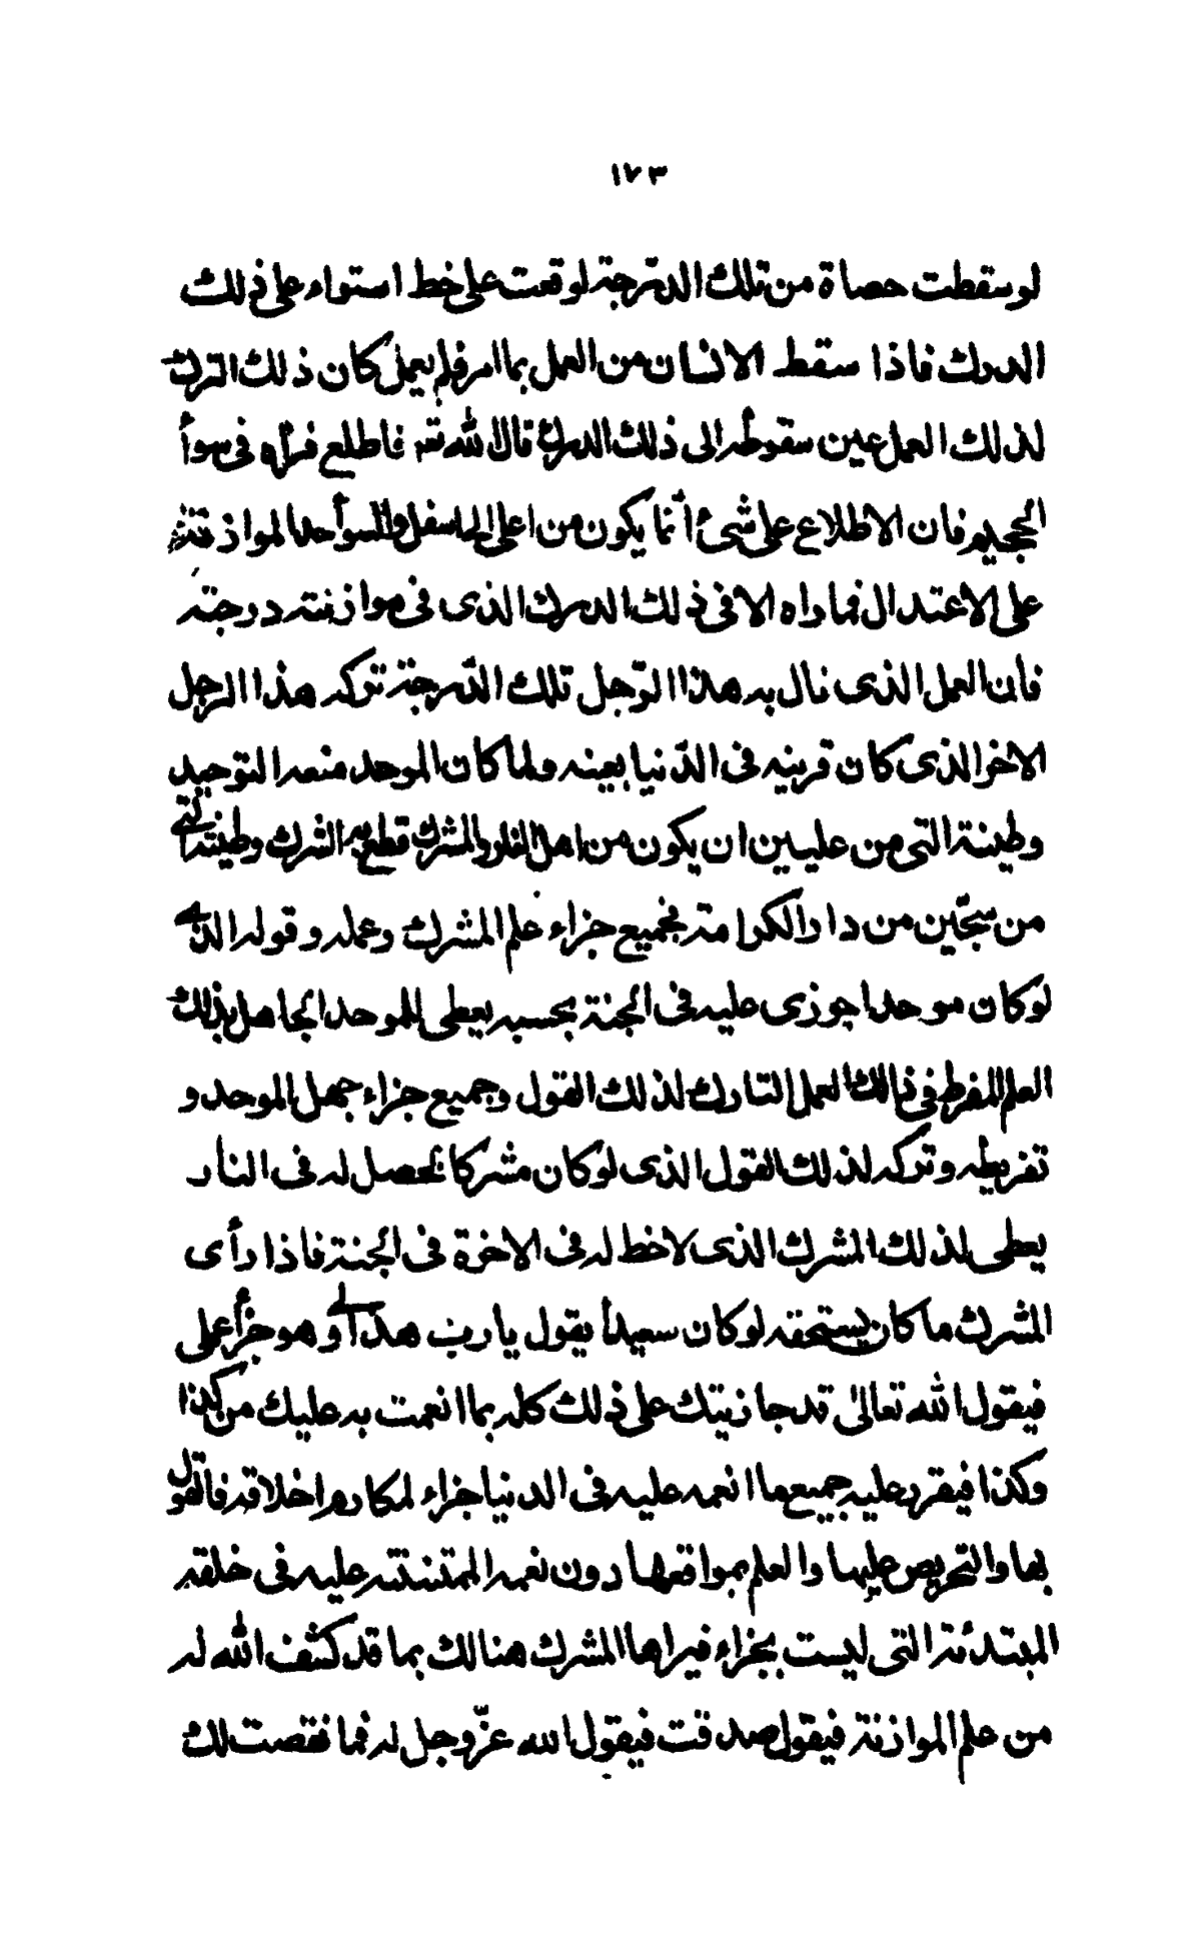 ١٧٣
لو سقطت حصاة من تلك الدرجة لوقعت على خط استواء على ذلك
الدرك فاذا سقط الانسان من العمل بما امر فلم يعمل كان ذلك الترك
لذلك العمل عين سقوطه الى ذلك الدرك قال الله تعه فاطلع فرآه فى سوأ
الجحيم فان الاطلاع على شئ أنما يكون من اعلى الى اسفل والسوأ حد الموازنة
على الاعتدال فما راه الا فى ذلك الدرك الذى فى موازنته درجته
فأن العمل الذى نال به هذا الرّجل تلك الدّرجة تركه هذا الرجل
الاخر الذى كان قرينه فى الدّنيا بعينه ولما كان الموحد منعه التوحيد
وطينة التى من عليين ان يكون من اهل النار والمشرك قطع به الشرك وطينته التى
من سجّين من دار الكرامة فجميع جزاء علم المشرك وعمله وقوله الذى
لو كان موحدا جوزى عليه فى الجنة بحسبه يعطى للموحد الجاهل بذلك
العلم المفرط فى ذلك العمل التارك لذلك القول وجميع جزاء جهل الموحد و
تفريطه وتركه لذلك القول الذى لو كان مشركا لحصل له فى النار
يعطى لذلك المشرك الذى لا خط له فى الاخرة فى الجنة فاذا رأى
المشرك ما كان يستحقه لو كان سعيدأ يقول يا رب هذا لى وهو جزأ عملى
فيقول الله تعالى قد جازيتك على ذلك كله بما انعمت به عليك من كذا
وكذا فيقرر عليه جميع ما انعمه عليه فى الدنيا جزاء لمكارم اخلاقه فالقول
بها والتحريص عليها والعلم بمواقعها دون نعمه الممتننته عليه فى خلقه
المبتدئة التى ليست بجزاء فيراها المشرك هنالك بما قد كشف الله له
من علم الموازنة فيقول صدقت فيقول الله عزّوجل له فما نقصت لك